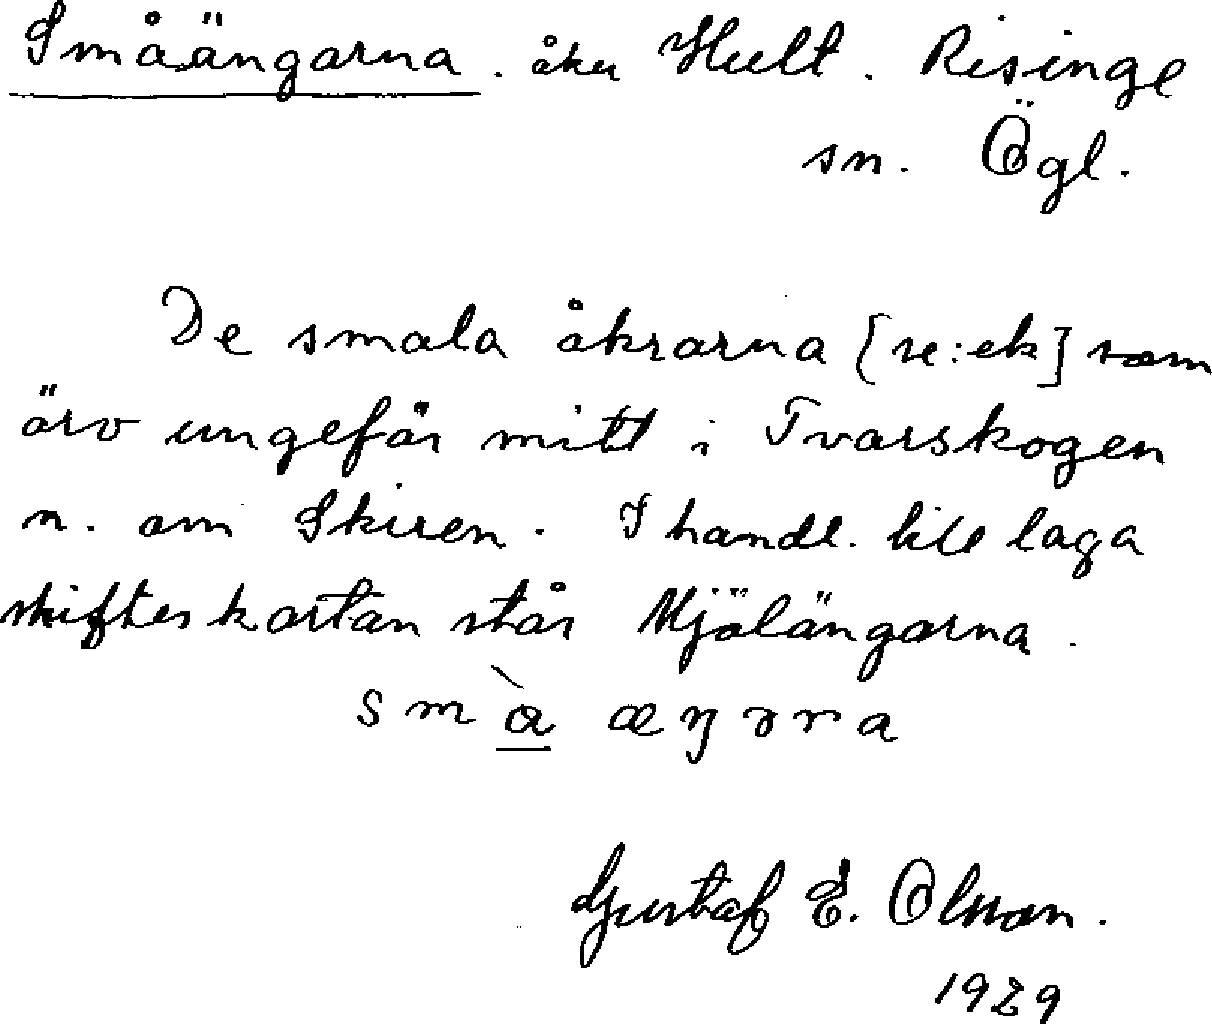 Småängarna. åker Hult. Risinge
sn. Ögl.
De smala åkrarna [re:ek] som
äro ungefär mitt i Tvarskogen
n. om Skiren. I handl. till laga
skifteskartan står Mjölängarna.
s m à æ ŋ ɔ r a
Gustaf E. Olsson.
1929